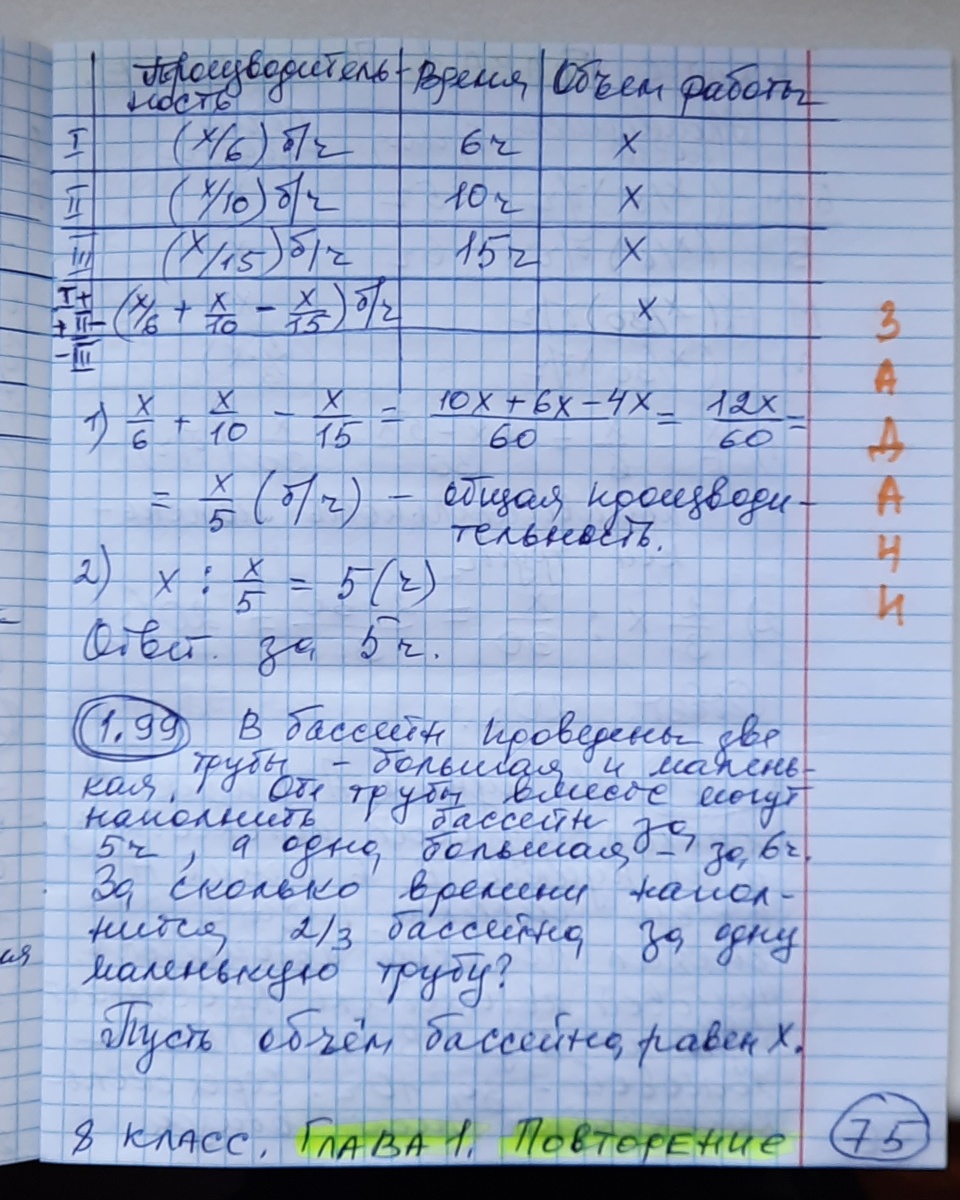 Производитель-
ность
Время
Объем работы
I (x/6) б/ч 6ч x
II (x/10) б/ч 10ч x
III (x/15) б/ч 15ч x
I+
+II-
-III
(x/6 + x/10 - x/15) б/ч x
1) x/6 + x/10 - x/15 = 10x+6x-4x/60 = 12x/60 =
= x/5 (б/ч) - общая производи-
тельность.
2) x : x/5 = 5 (ч)
Ответ. за 5ч.
1.99 В бассейн проведены две
трубы - большая и малень-
кая. Обе трубы вместе могут
наполнить бассейн за
5ч, а одна большая - за 6ч.
За сколько времени напол-
нится 2/3 бассейна за одну
маленькую трубу?
Пусть объём бассейна равен x.
8 КЛАСС. ГЛАВА 1. ПОВТОРЕНИЕ
75
З
А
Д
А
Ч
И